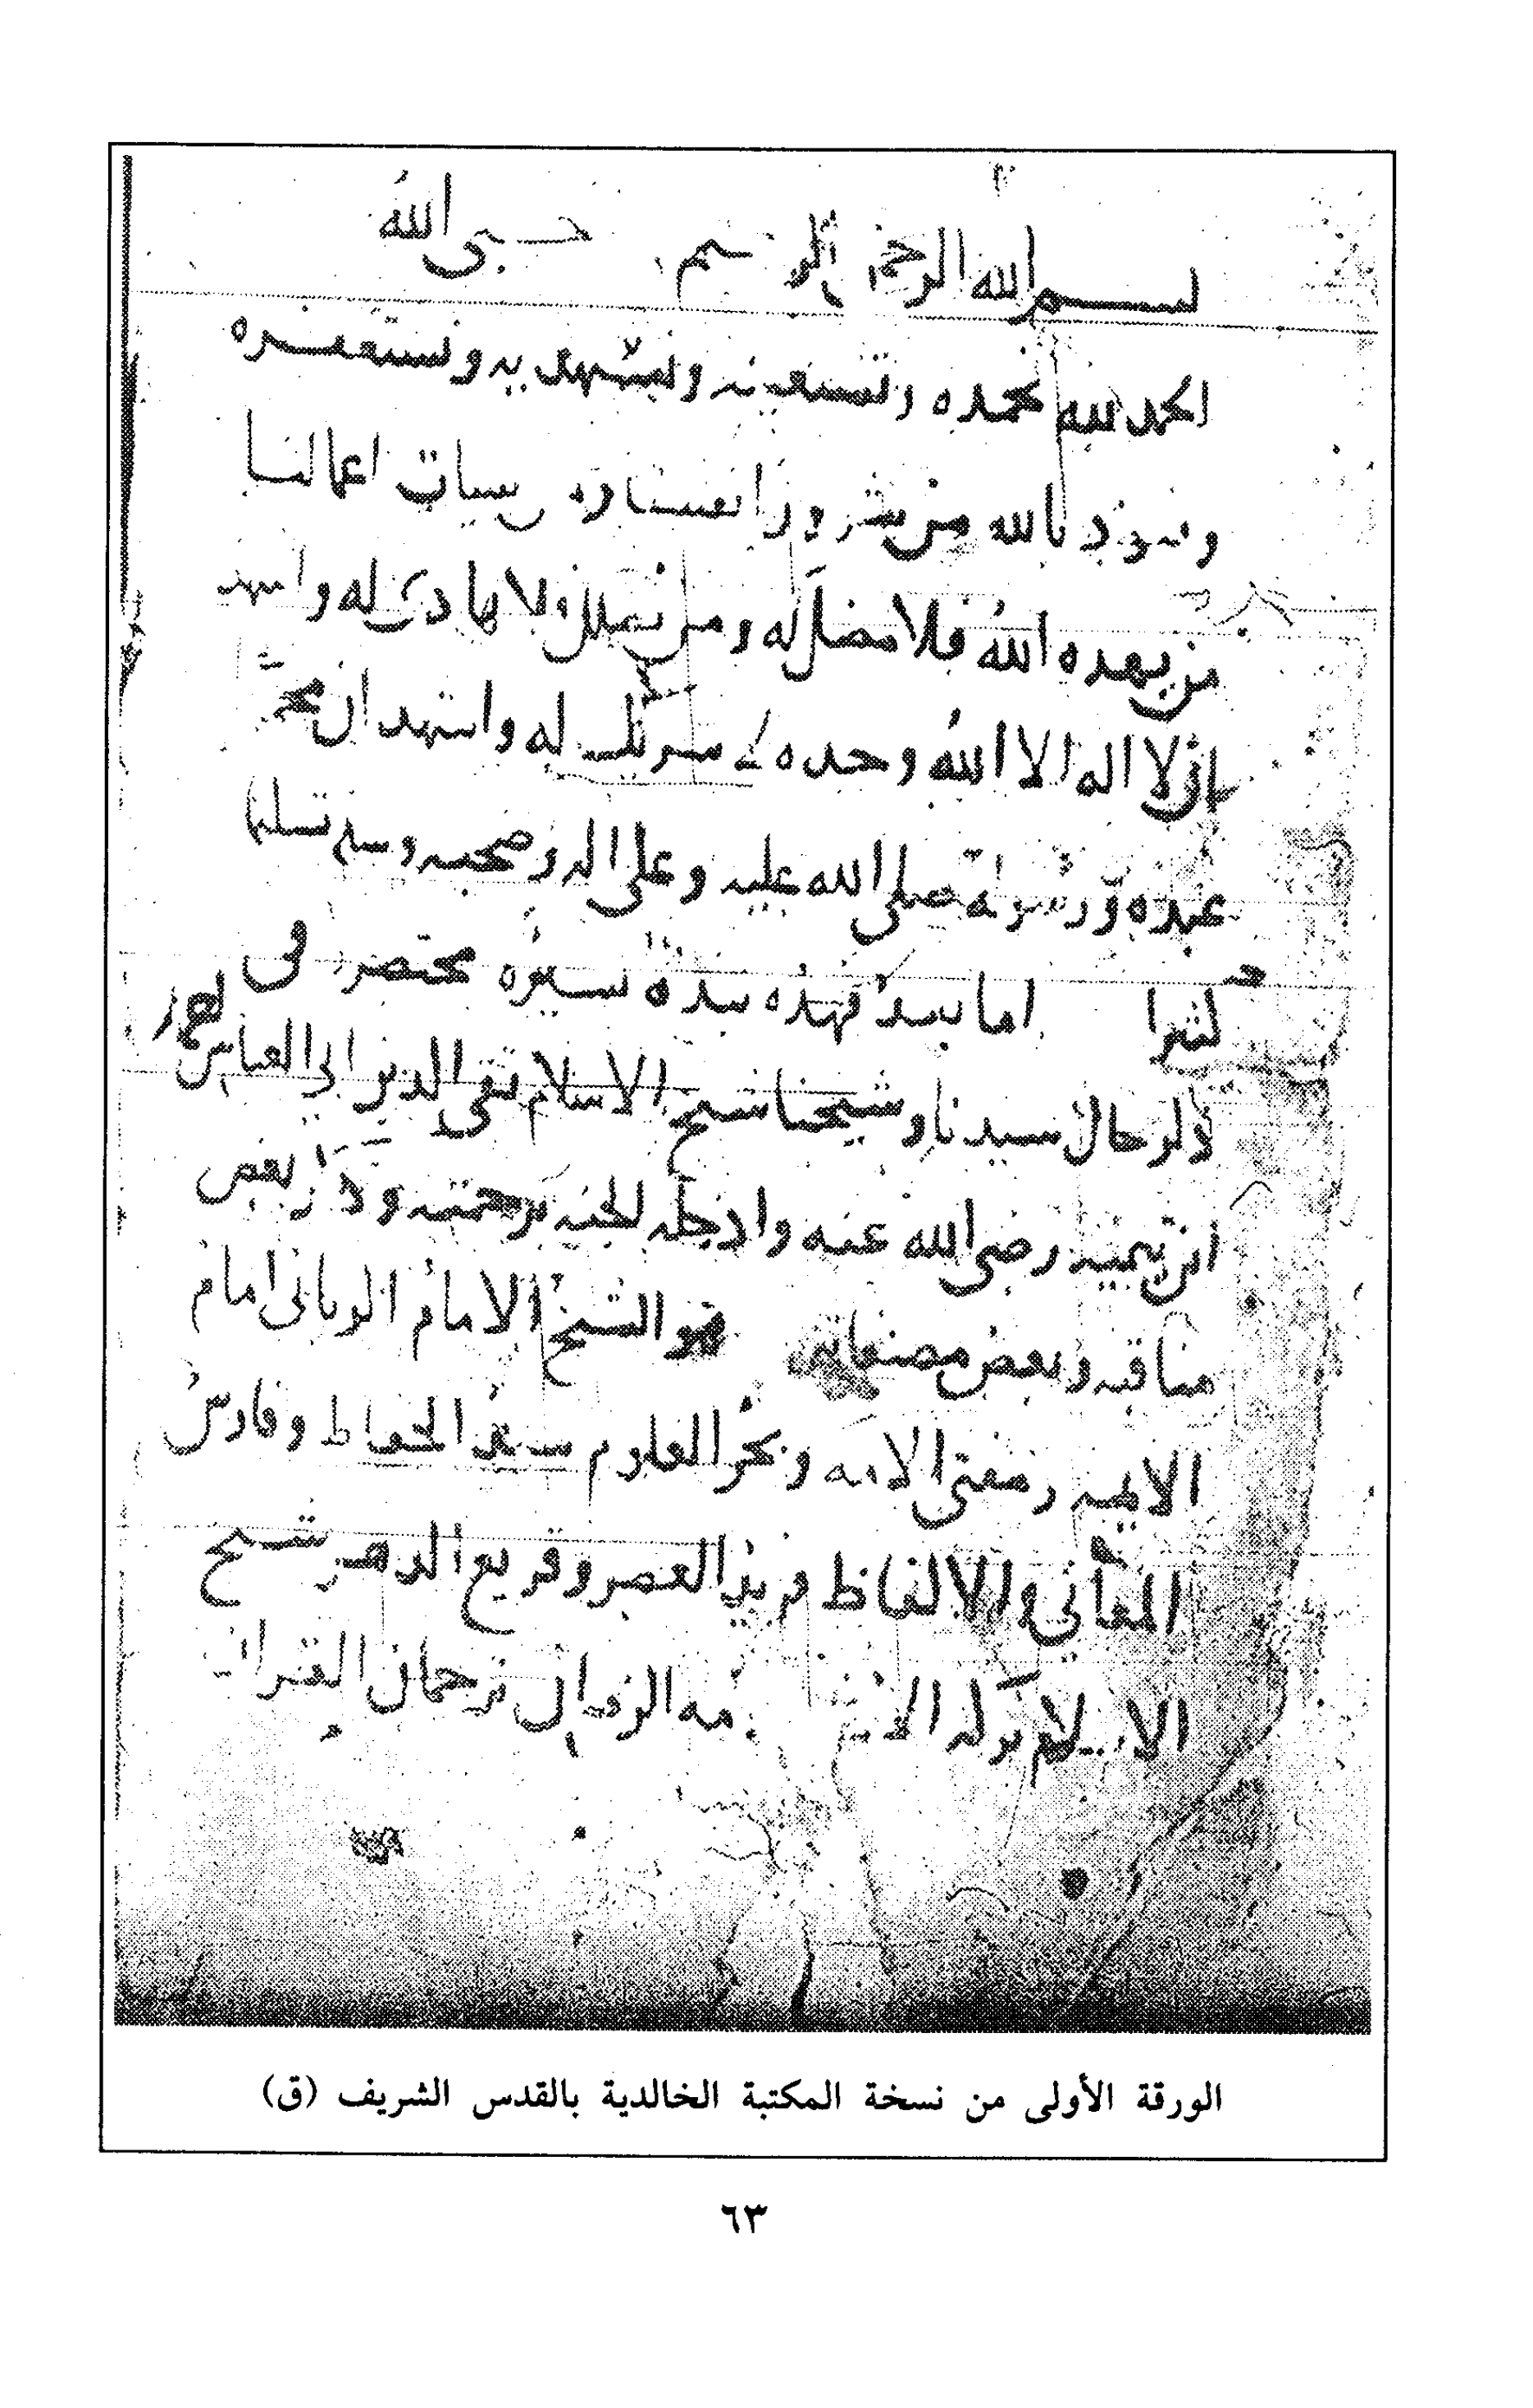 بسم الله الرحمن الرحيم حسبي الله
الحمد لله نحمده ونستعينه ونستهديه ونستغفره
ونعوذ بالله من شرور انفسنا ومن سيات اعمالنا
من يهده الله فلا مضل له ومن يضلل فلا هادي له واشهد
ان لا اله الا الله وحده لا شريك له واشهد ان محمدا
عبده ورسوله صلى الله عليه وعلى اله وصحبه وسلم تسليما
كثيرا اما بعد فهذه نبذة يسيره مختصره في
ذكر حال سيدنا وشيخنا شيخ الاسلام تقي الدين ابي العباس احمد
ابن تيميه رضي الله عنه وادخله الجنه برحمته وذكر بعض
مناقبه وبعض مصنفاته فهو الشيخ الامام الرباني امام
الايمه ومفتي الامه وبحر العلوم سيد الحفاظ وفارس
المعاني والالفاظ فريد العصر وقريع الدهر شيخ
الاسلام بركه الانام علامه الزمان ترجمان القران
الورقة الأولى من نسخة المكتبة الخالدية بالقدس الشريف (ق)
٦٣